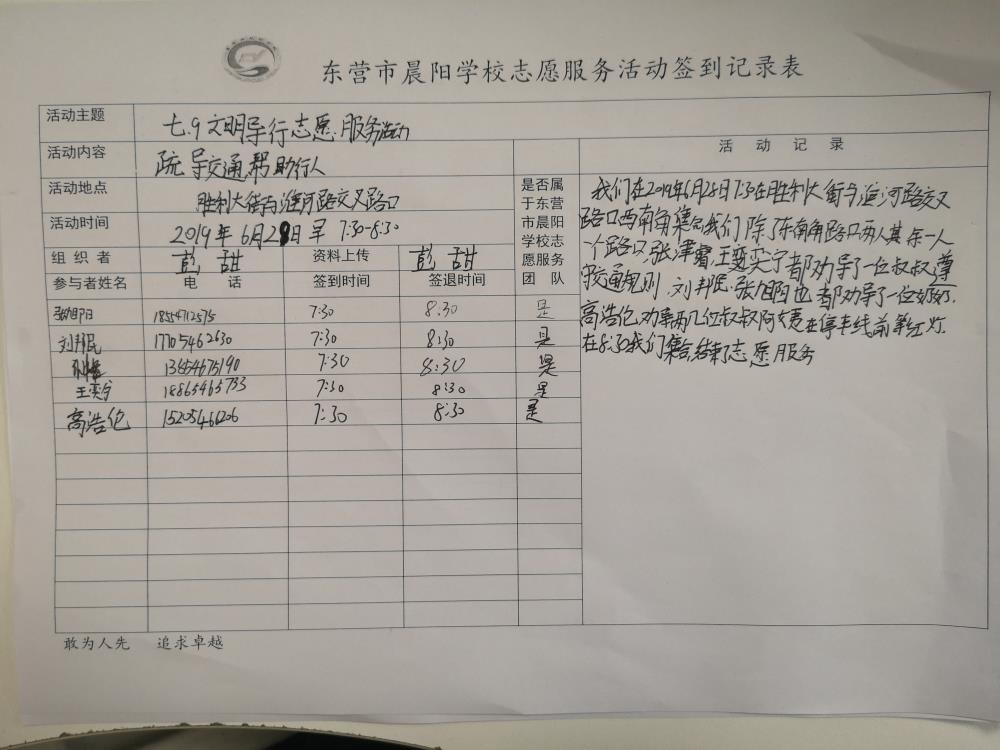 东营市晨阳学校志愿服务活动签到记录表
活动主题 七.9文明导行志愿服务活动
活动内容 疏导交通帮助行人
活动地点 胜利大街与淮河路交叉路口
活动时间 2019年6月28日早 7:30-8:30
组织者 彭甜 资料上传 彭甜
是否属于东营市晨阳学校志愿服务团队
参与者姓名 电话 签到时间 签退时间
张旭阳 18554712575 7:30 8:30 是
刘邦民 17705462630 7:30 8:30 是
13854675190 7:30 8:30 是
王奕宁 18865465733 7:30 8:30 是
高浩伦 15205466206 7:30 8:30 是
活动记录
我们在2019年6月28日7:30在胜利大街与淮河路交叉
路口西南角集合我们除了东南角路口两人其余一人
一个路口,张津睿,王奕宁都劝导了一位叔叔遵
守交通规则,刘邦民,张旭阳也都劝导了一位奶奶,
高浩伦劝导两几位叔叔阿姨在停车线前等红灯.
在8:30我们集合,结束了志愿服务
敢为人先 追求卓越